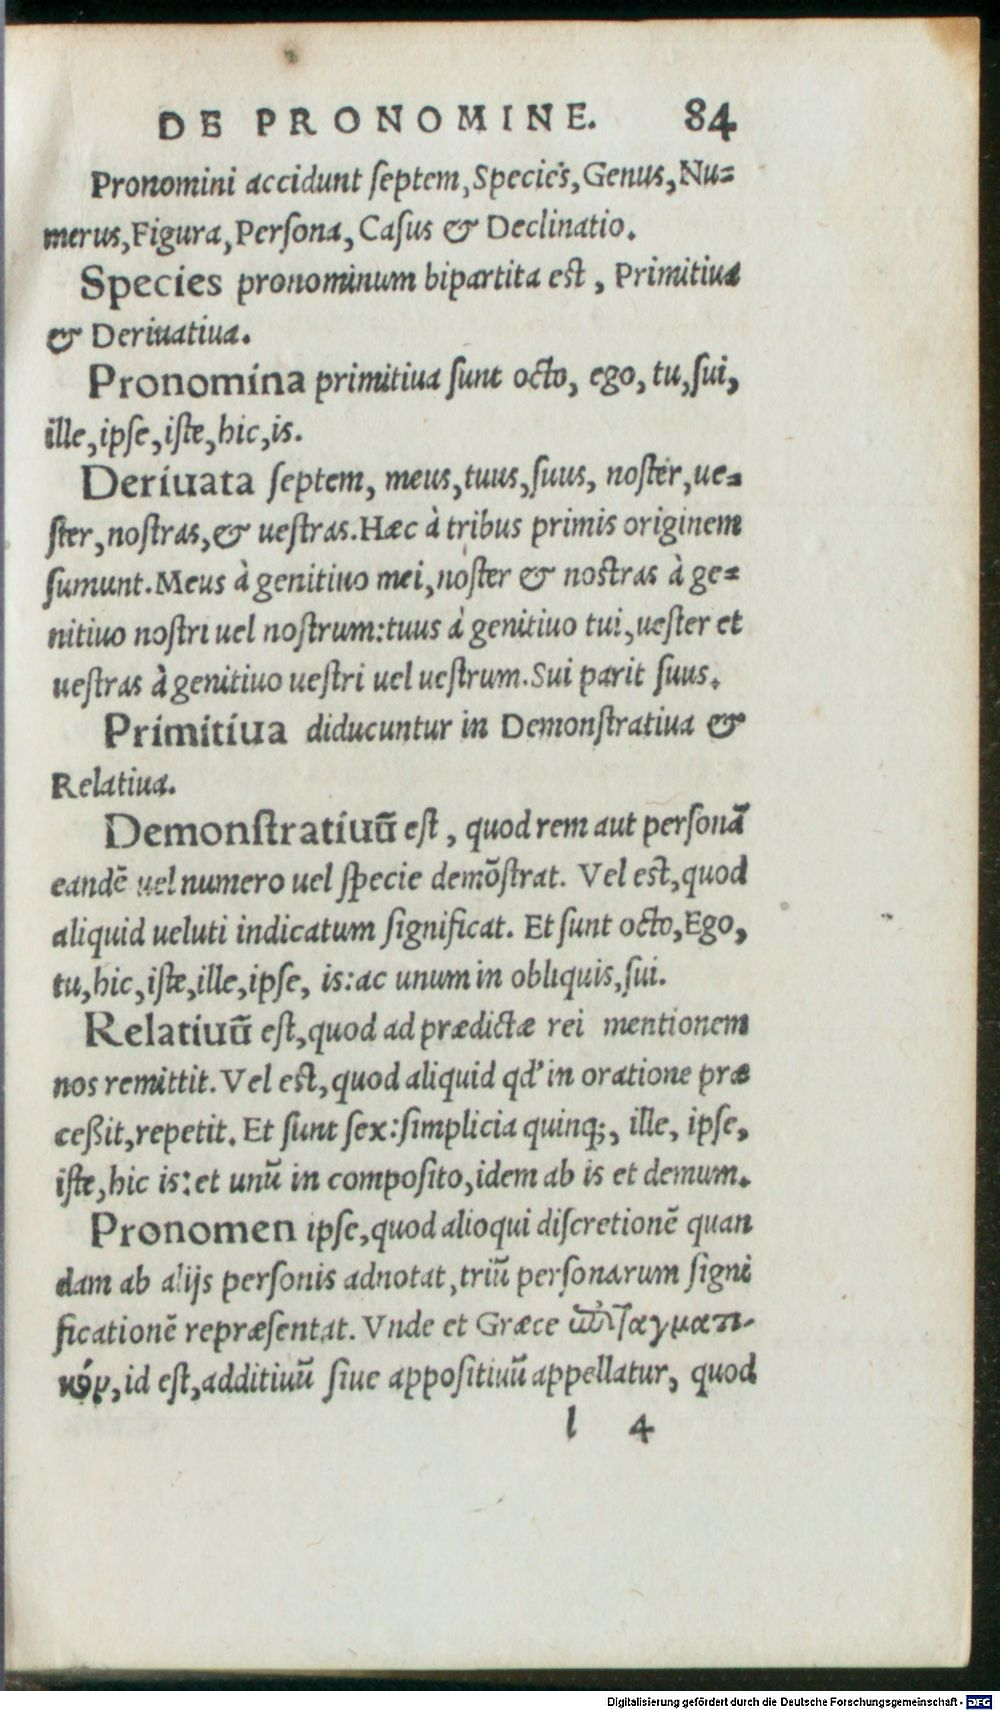 DE PRONOMINE. 84
Pronomini accidunt ſeptem, Species, Genus, Nu=
merus, Figura, Perſona, Caſus & Declinatio.
Species pronominum bipartita est, Primitiua
& Deriuatiua.
Pronomina primitiua ſunt octo, ego, tu, ſui,
ille, ipſe, iſte, hic, is.
Deriuata ſeptem, meus, tuus, ſuus, noſter, ue=
ſter, noſtras, & ueſtras. Hæc à tribus primis originem
ſumunt. Meus à genitiuo mei, noſter & nostras à ge=
nitiuo noſtri uel noſtrum: tuus à genitiuo tui, ueſter et
ueſtras à genitiuo ueſtri uel ueſtrum. Sui parit ſuus.
Primitiua diducuntur in Demonſtratiua &
Relatiua.
Demonſtratiuũ eſt, quod rem aut perſonã
eandẽ uel numero uel ſpecie demõſtrat. Vel est, quod
aliquid ueluti indicatum ſignificat. Et ſunt octo, Ego,
tu, hic, iſte, ille, ipſe, is: ac unum in obliquis, ſui.
Relatiuũ eſt, quod ad prædictæ rei mentionem
nos remittit. Vel est, quod aliquid qd' in oratione præ
ceßit, repetit. Et ſunt ſex: ſimplicia quinq;, ille, ipſe,
iſte, hic is: et unũ in compoſito, idem ab is et demum.
Pronomen ipſe, quod alioqui diſcretionẽ quan
dam ab alijs perſonis adnotat, triũ perſonarum ſigni
ficationẽ repræſentat. Vnde et Græce
id eſt, additiuũ ſiue appoſitiuũ appellatur, quod
l 4
Digitalisierung gefördert durch die Deutsche Forschungsgemeinschaft - DFG